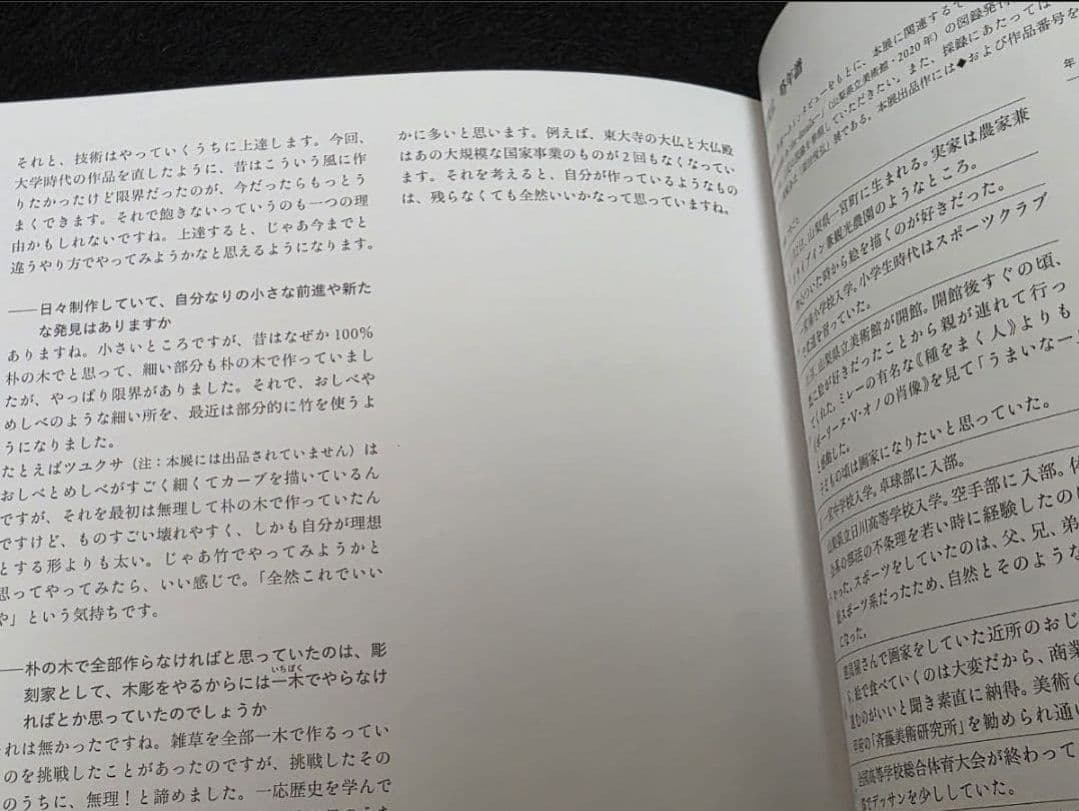 それと、技術はやっていくうちに上達します。今回、
大学時代の作品を直したように、昔はこういう風に作
りたかったけど限界だったのが、今だったらもっとう
まくできます。それで飽きないっていうのも一つの理
由かもしれないですね。上達すると、じゃあ今までと
違うやり方でやってみようかなと思えるようになります。
――日々制作していて、自分なりの小さな前進や新た
な発見はありますか
ありますね。小さいところですが、昔はなぜか100%
朴の木でと思って、細い部分も朴の木で作っていまし
たが、やっぱり限界がありました。それで、おしべや
めしべのような細い所を、最近は部分的に竹を使うよ
うになりました。
たとえばツユクサ（注：本展には出品されていません）は
おしべとめしべがすごく細くてカーブを描いているん
ですが、それを最初は無理して朴の木で作っていたん
ですけど、ものすごい壊れやすく、しかも自分が理想
とする形よりも太い。じゃあ竹でやってみようかと
思ってやってみたら、いい感じで。「全然これでいい
や」という気持ちです。
――朴の木で全部作らなければと思っていたのは、彫
刻家として、木彫をやるからには一木でやらなけ
いちぼく
ればとか思っていたのでしょうか
それは無かったですね。雑草を全部一木で作るってい
のを挑戦したことがあったのですが、挑戦したその
のうちに、無理！と諦めました。一応歴史を学んで
かに多いと思います。例えば、東大寺の大仏と大仏殿
はあの大規模な国家事業のものが2回もなくなってい
ます。それを考えると、自分が作っているようなもの
は、残らなくても全然いいかなって思っていますね。
略年譜
インタビューをもとに、本展に関連する
（山梨県立美術館・2020年）の図録
参照していただきたい。また、採録にあたっては
展である。本展出品作には◆および作品番号を
年
山梨県一宮町に生まれる。実家は農家兼
ドライブイン兼観光農園のようなところ。
ついた時から絵を描くのが好きだった。
小学校入学。小学生時代はスポーツクラブ
を習っていた。
山梨県立美術館が開館。開館後すぐの頃、
絵が好きだったことから親が連れて行っ
てくれた。ミレーの有名な《種をまく人》よりも
《ポーリーヌ・V・オノの肖像》を見て「うまいなー」
感動した。
子どもの頃は画家になりたいと思っていた。
中学校入学。卓球部に入部。
山梨県立日川高等学校入学。空手部に入部。体
系の部活の不条理を若い時に経験したのは
かった。スポーツをしていたのは、父、兄、弟
スポーツ系だったため、自然とそのような
になった。
建具屋さんで画家をしていた近所のおじ
絵で食べていくのは大変だから、商業
のがいいと聞き素直に納得。美術の
「斉藤美術研究所」を勧められ通い
全国高等学校総合体育大会が終わって
デッサンを少ししていた。